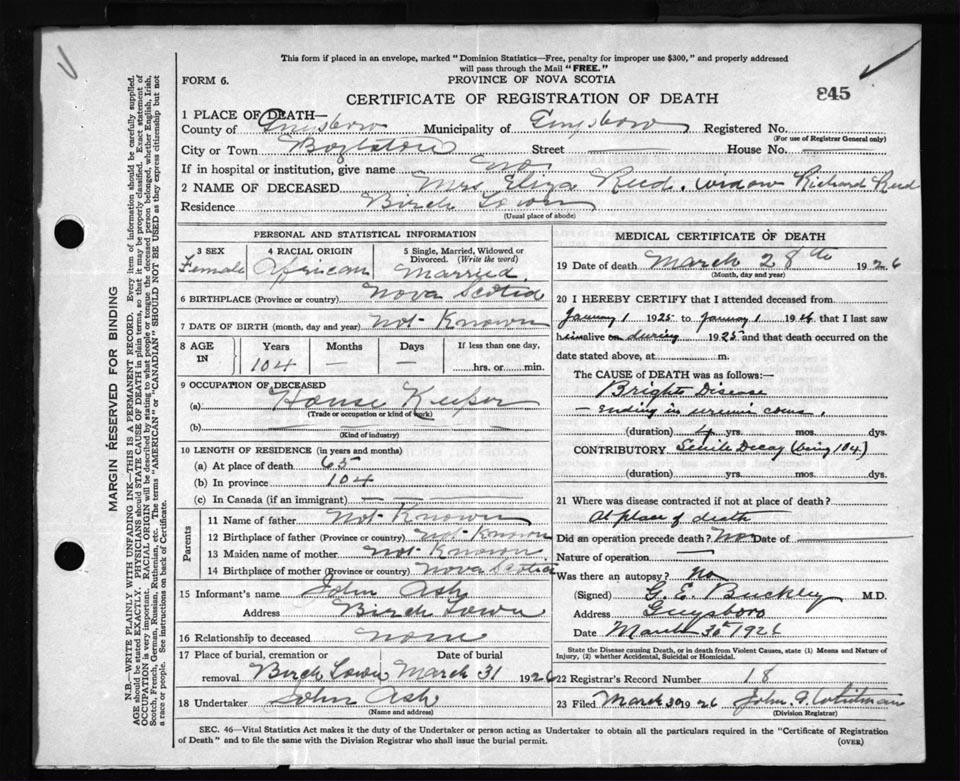 This form if placed in an envelope, marked "Dominion Statistics—Free, penalty for improper use $300," and properly addressed
will pass through the Mail "FREE."
FORM 6.
PROVINCE OF NOVA SCOTIA
CERTIFICATE OF REGISTRATION OF DEATH
845
1 PLACE OF DEATH—
County of Guysboro Municipality of Guysboro Registered No.
(For use of Registrar General only)
City or Town Boylston Street House No.
If in hospital or institution, give name no
2 NAME OF DECEASED Mrs Eliza Reed. widow Richard Reed
Residence Birch Town
(Usual place of abode)
PERSONAL AND STATISTICAL INFORMATION
3 SEX 4 RACIAL ORIGIN 5 Single, Married, Widowed or
Divorced. (Write the word)
Female African Married
6 BIRTHPLACE (Province or country) Nova Scotia
7 DATE OF BIRTH (month, day and year) Not Known
8 AGE IN Years Months Days If less than one day,
104 — — hrs. or min.
9 OCCUPATION OF DECEASED
(a) House Keeper
(Trade or occupation or kind of work)
(b)
(Kind of industry)
10 LENGTH OF RESIDENCE (in years and months)
(a) At place of death 65
(b) In province 104
(c) In Canada (if an immigrant)
Parents
11 Name of father Not Known
12 Birthplace of father (Province or country) Not Known
13 Maiden name of mother Not Known
14 Birthplace of mother (Province or country) Nova Scotia
15 Informant's name John Ash
Address Birch Town
16 Relationship to deceased none
17 Place of burial, cremation or Date of burial
removal Birch Town March 31 1926
18 Undertaker John Ash
(Name and address)
MEDICAL CERTIFICATE OF DEATH
19 Date of death March 28th 1926
(Month, day and year)
20 I HEREBY CERTIFY that I attended deceased from
January 1 1925 to January 1 1926 that I last saw
h alive on during 1925 and that death occurred on the
date stated above, at m.
The CAUSE of DEATH was as follows:—
Brights Disease
— ending in uremic coma.
(duration) 4 yrs. mos. dys.
CONTRIBUTORY Senile Decay (being 104)
(duration) yrs. mos. dys.
21 Where was disease contracted if not at place of death?
At place of death
Did an operation precede death? No Date of
Nature of operation
Was there an autopsy? No
(Signed) G. E. Buckley M.D.
Address Guysboro
Date March 30th 1926
State the Disease causing Death, or in death from Violent Causes, state (1) Means and Nature of
Injury, (2) whether Accidental, Suicidal or Homicidal.
22 Registrar's Record Number 18
23 Filed March 30 1926 John A. Whitman
(Division Registrar)
SEC. 46—Vital Statistics Act makes it the duty of the Undertaker or person acting as Undertaker to obtain all the particulars required in the "Certificate of Registration
of Death" and to file the same with the Division Registrar who shall issue the burial permit.
(OVER)
MARGIN RESERVED FOR BINDING
N.B.—WRITE PLAINLY WITH UNFADING INK—THIS IS A PERMANENT RECORD. Every item of information should be carefully supplied.
AGE should be stated EXACTLY. PHYSICIANS should STATE CAUSE OF DEATH in plain terms, so that it may be properly classified. Exact statement of
OCCUPATION is very important. RACIAL ORIGIN will be described by stating to what people or tongue the deceased person belonged, whether English, Irish,
Scotch, French, German, Russian, Ruthenian, etc. The terms "AMERICAN" or "CANADIAN" SHOULD NOT BE USED as they express citizenship but not
a race or people. See instructions on back of Certificate.